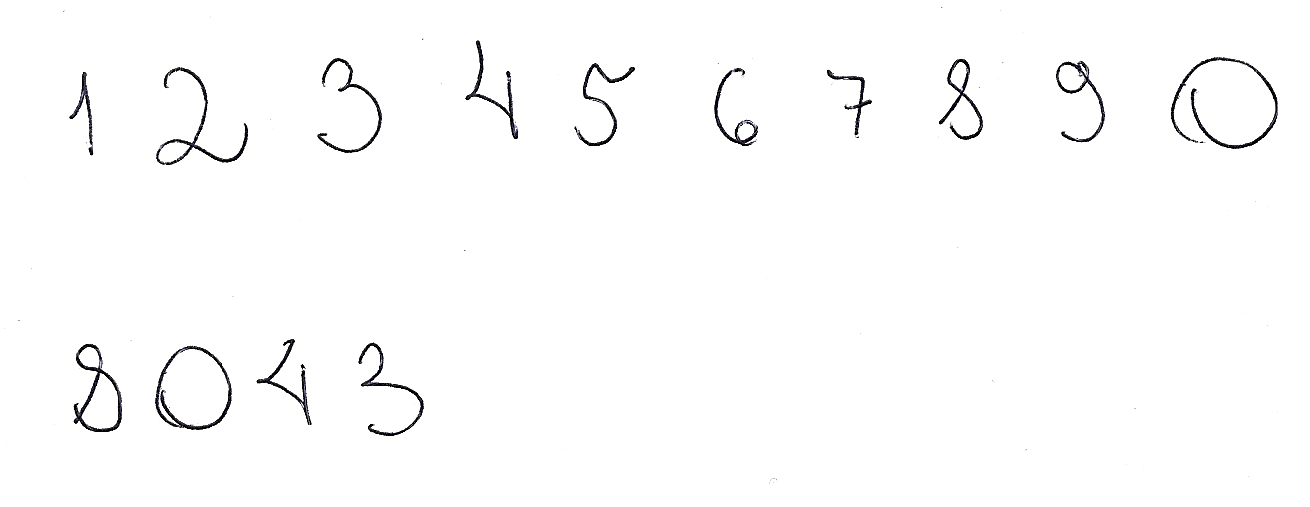 1 2 3 4 5 6 7 8 9 0
8 0 4 3